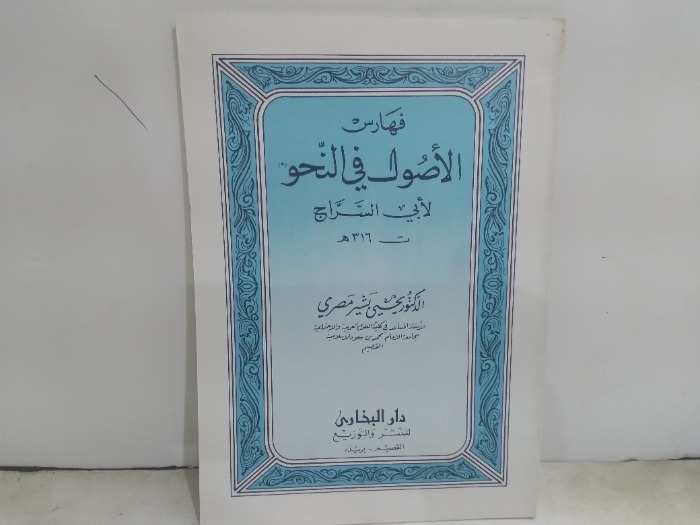 فهارس
الأصول في النحو
لأبي السراج
ت ٣١٦ هـ
الدكتور يحيى بشير مصري
الأستاذ المساعد في كلية العلوم العربية والاجتماعية
بجامعة الإمام محمد بن سعود الإسلامية
القصيم
دار البخاري
للنشر والتوزيع
القصيم - بريدة